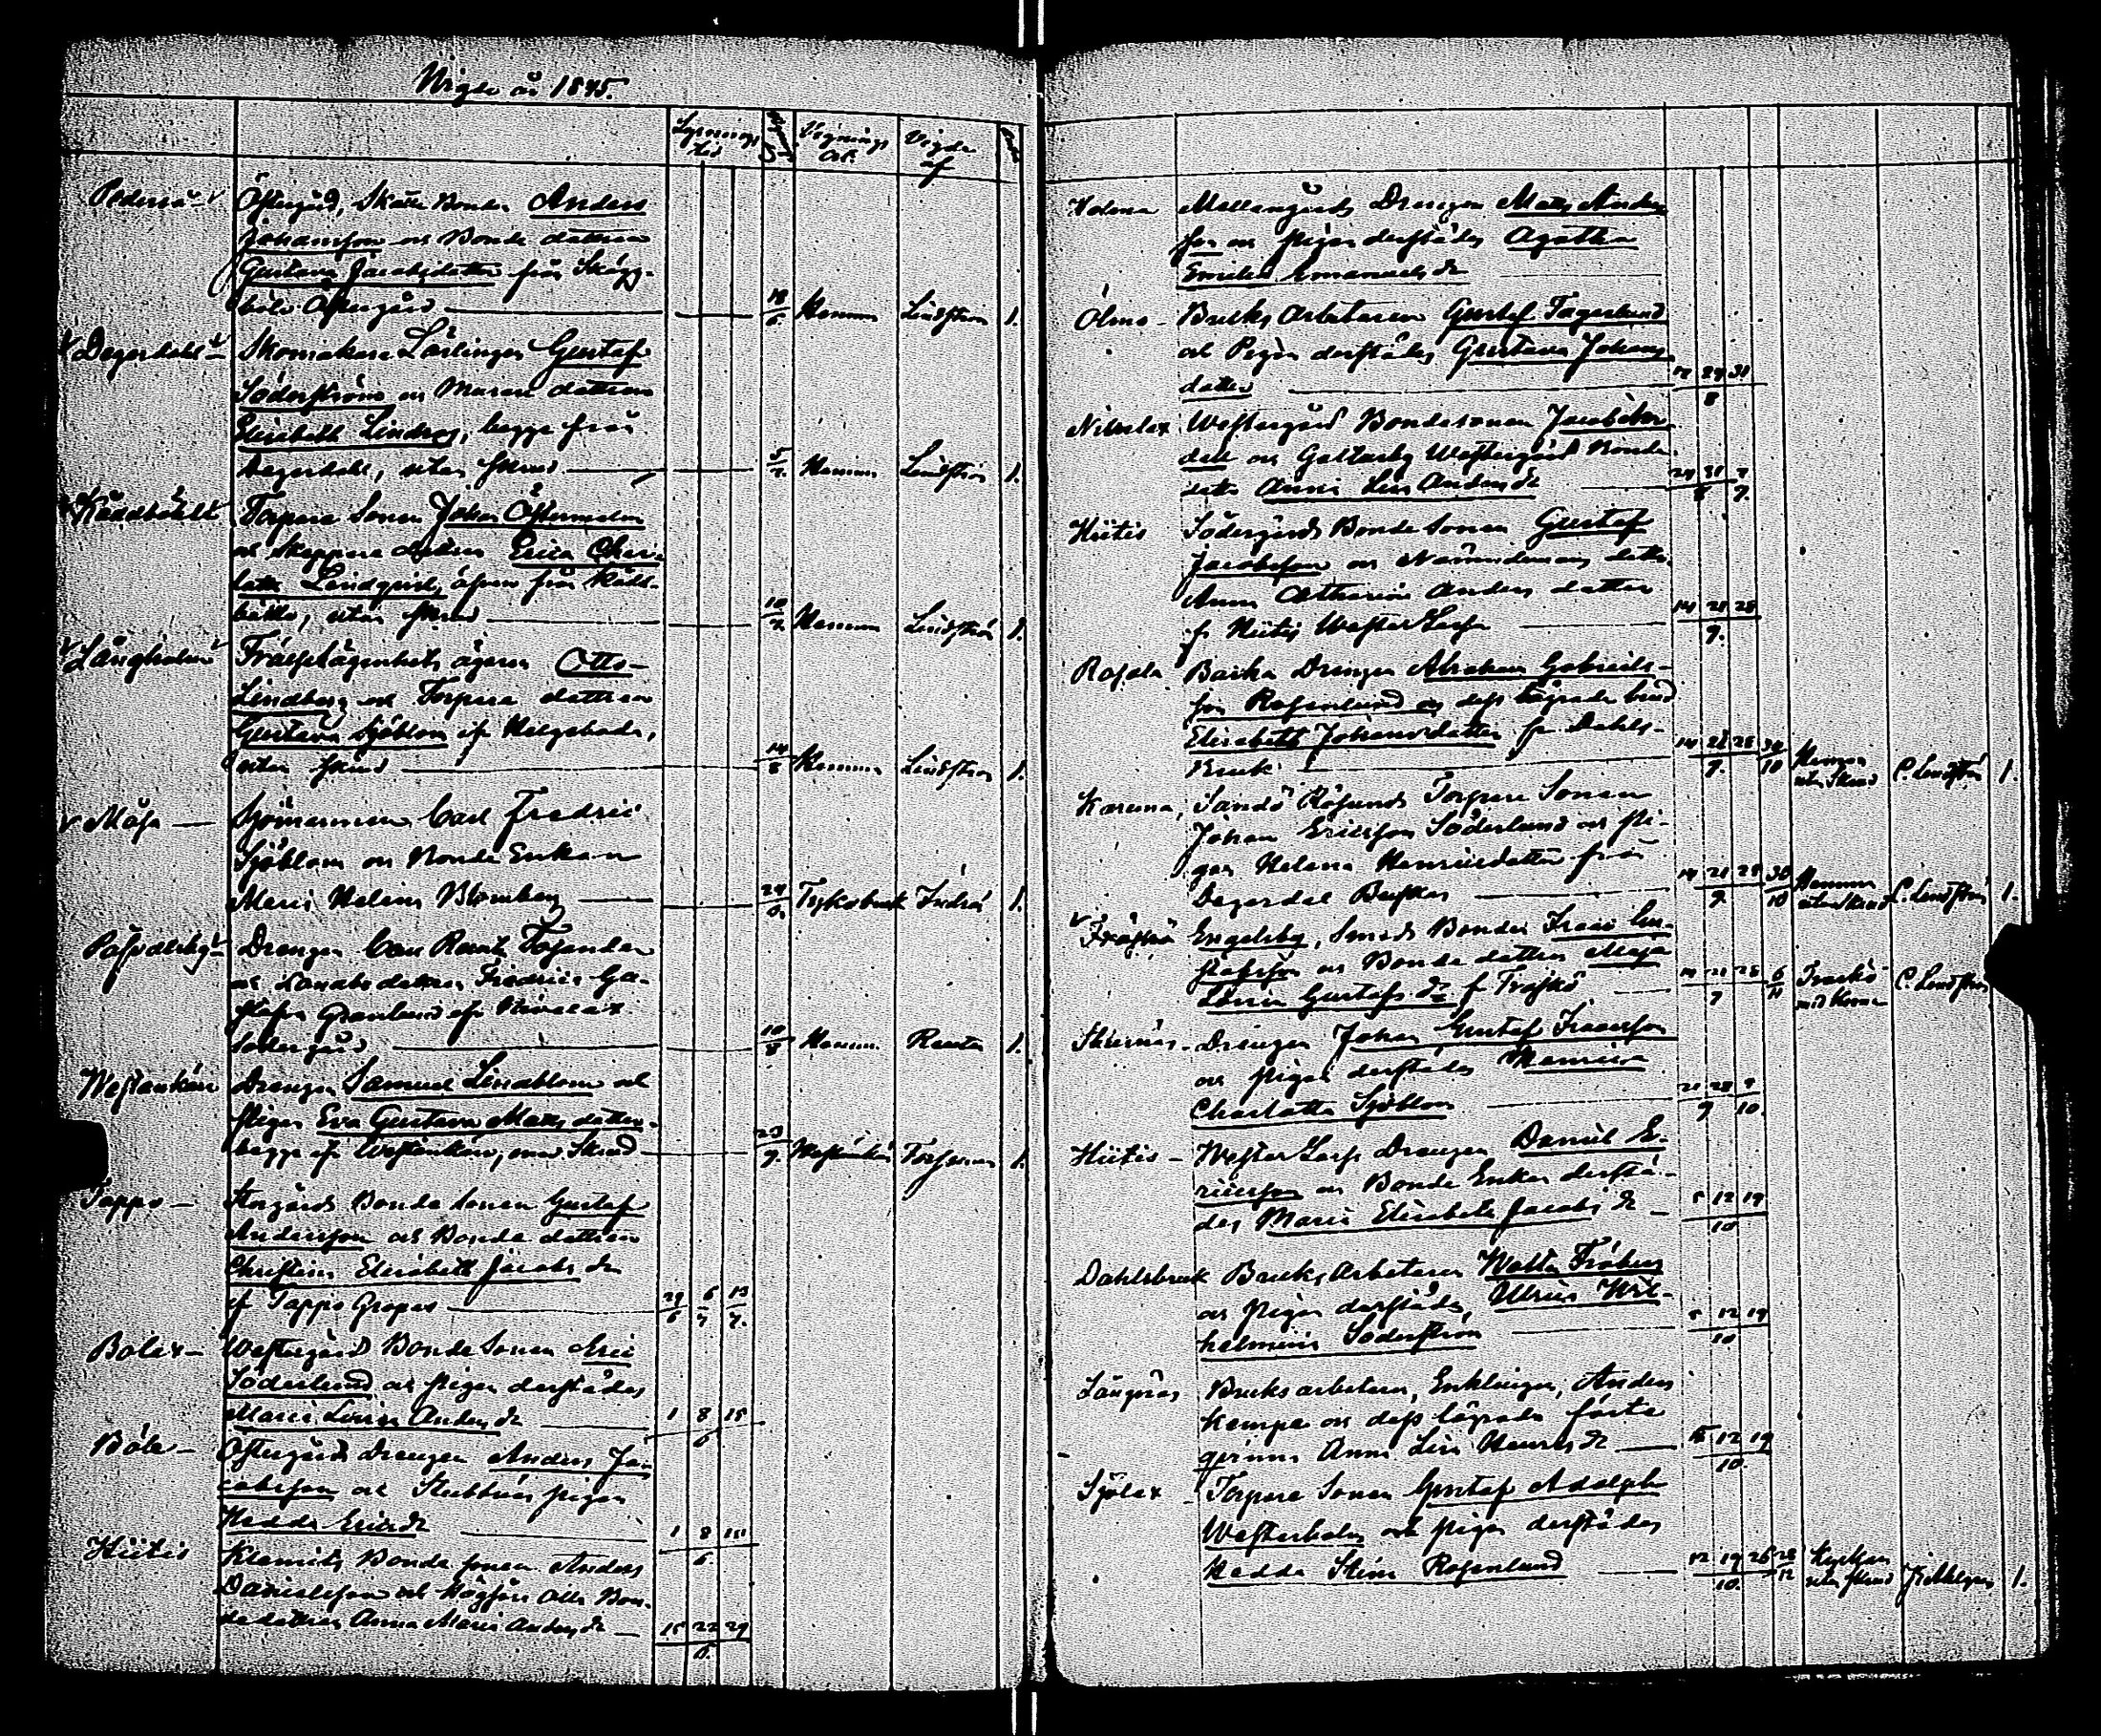 Vigde år 1845.
Lysnings tid
Vignings ort
Vigde af
Pederså Östergård, Skatte Bonden Anders
Johansson och Bonde dottren
Gustava Jacobsdotter från Skägg-
böle Östergård 18/6 Hemma Lindström 1.
Degerdahl Skomakare Lärlingen Gustaf
Söderström och Murare dottren
Elisabeth Lindroos, begge från
Degerdahl, utan skrud 5/7 Hemma Lindström 1.
Torpare Sonen Johan Östermalm
och Skeppare dottren Erica Char-
lotta Lindqvist, äfven från
utan skrud 10/7 Hemma Lindström 1.
Långholmen Frälselägenhets ägaren Otto
Lindberg och Torpare dottren
Gustava Sjöblom ifr Helgeboda,
utan skrud 14/8 Hemma Lindström 1.
Sjömannen Carl Fredric
Sjöblom och Bonde Enkan
Maria Helena Blomberg 24/6 Tykobruk 1.
Drengen Carl
och Fredrica Gu-
Granlund ifr Nivelax
Södergård 10/8 Hemma 1.
Westankärr Drengen Samuel Lindblom och
pigan Eva Gustava Matts dotter
begge ifr Westankärr, med Skrud 23/9 Westankärr Forsman 1.
Tappo Storgårds Bonde Sonen Gustaf
Andersson och Bonde dottren
Christina Elisabeth Jacobs dr
af Tappo Gropas 29/6 6/7 13/7.
Bolax Westergård Bonde Sonen
Söderlund och pigan derstädes
Maria Lovisa Anders dr 1 8 15/6
Böle Östergårds Drengen Anders Ja-
cobsson och Stubbnäs pigan
Hedda Ericsdr 1 8 15/6
Hiitis Klemets Bonde sonen Anders
Danielsson och Högsåra Bon-
dedottren Anna Maria Anders dr 15 22 29/6.
Holma Mellangårds Drengen Matts Anders
son och pigan derstädes Agatha
Emilia Emanuels dr
Ölmo Bruks Arbetaren Gustaf Fagerlund
och Pigan derstädes Gustava Johans
dotter 17 24 31/8
Nivelax Westergård Bondesonen Jacob
och Galtarby Westergård Bonde
dotter Anna Lisa Anders dr 24 31/8 7/9.
Hiitis Södergårds Bonde Sonen Gustaf
Jacobsson och Nämndemans dotter
Anna Catharina Anders dotter
fr Hiitis Wester Lars 14 21 28/9.
Rosala Backa Drengen Abraham Gabriels-
son Rosenlund och dess lägrade brud
Elisabeth Johansdotter fr Dahls-
Bruk 14 21 28/9. 30/10 Hemma utan Skrud C. Lindström 1.
Karuna, Sandö Torpare Sonen
Johan Ericsson Söderlund och pi-
gan Helena Henricsdotter från
Degerdal 14 21 28/9 30/10 Hemma utan Skrud C. Lindström 1.
Engelsby, Smeds Bonden
och Bonde dottren Maja
Lovisa Gustafs dr 14 21 28/9 6/11 C. Lindström
Skinnäs Drengen Johan Gustaf Isacsson
och pigan derstädes Henrica
Charlotta Sjöblom 21 28/9 5/10
Hiitis Wester Lars Drengen Daniel E-
ricsson och Bonde Enkan derstä-
des Maria Elisabeth Jacobs dr 5 12 19/10
Dahlsbruk Bruks Arbetaren
och pigan derstädes, Ulrica Wil-
helmina Söderström 5 12 19/10
Långnäs Bruksarbetaren, Enklingen, Anders
Kempe och dess lägrade fäste
qvinna Anna Lisa Henrs dr 5 12 19/10.
Sjölax Torpare Sonen Gustaf Adolph
Westerholm och pigan derstädes
Hedda Stina Rosenlund 12 19 26/10. 28/12 Kyrkan utan skrud 1.